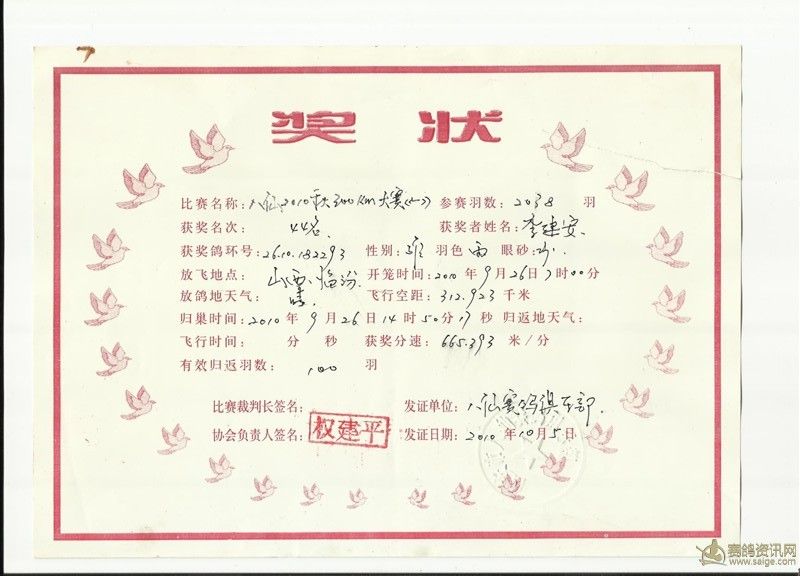 奖 状
比赛名称：八仙2010秋300Km大赛(4-2) 参赛羽数：2038 羽
获奖名次： 44名 获奖者姓名：李建安
获奖鸽环号：26.10.182293 性别：雄 羽色 雨 眼砂：沙
放飞地点： 山西临汾 开笼时间：2010年9月26日7时00分
放鸽地天气： 晴 飞行空距：312.923千米
归巢时间：2010年9月26日14时50分17秒 归返地天气：
飞行时间： 分 秒 获奖分速：665.393 米/分
有效归返羽数： 100 羽
比赛裁判长签名： 发证单位：八仙赛鸽俱乐部
协会负责人签名：权建平 发证日期：2010年10月5日
赛鸽资讯网
www.saige.com